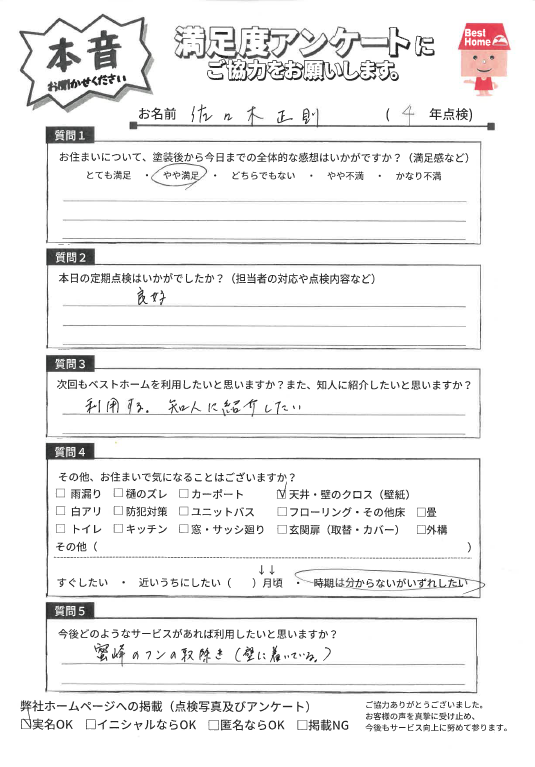 本音
お聞かせください
満足度アンケートに
ご協力をお願いします。
Best Home
お名前 佐々木正則 ( 4 年点検)
質問1
お住まいについて、塗装後から今日までの全体的な感想はいかがですか？（満足感など）
とても満足 ・ やや満足 ・ どちらでもない ・ やや不満 ・ かなり不満
質問2
本日の定期点検はいかがでしたか？（担当者の対応や点検内容など）
良好
質問3
次回もベストホームを利用したいと思いますか？また、知人に紹介したいと思いますか？
利用する。知人に紹介したい
質問4
その他、お住まいで気になることはございますか？
□ 雨漏り □ 樋のズレ □ カーポート ☑ 天井・壁のクロス（壁紙）
□ 白アリ □ 防犯対策 □ ユニットバス □ フローリング・その他床 □ 畳
□ トイレ □ キッチン □ 窓・サッシ廻り □ 玄関扉（取替・カバー） □ 外構
その他（ ）
↓↓
すぐしたい ・ 近いうちにしたい（ ）月頃 ・ 時期は分からないがいずれしたい
質問5
今後どのようなサービスがあれば利用したいと思いますか？
蜜蜂のフンの取除き（壁に着いている。）
弊社ホームページへの掲載（点検写真及びアンケート）
☑実名OK □イニシャルならOK □匿名ならOK □掲載NG
ご協力ありがとうございました。
お客様の声を真摯に受け止め、
今後もサービス向上に努めて参ります。